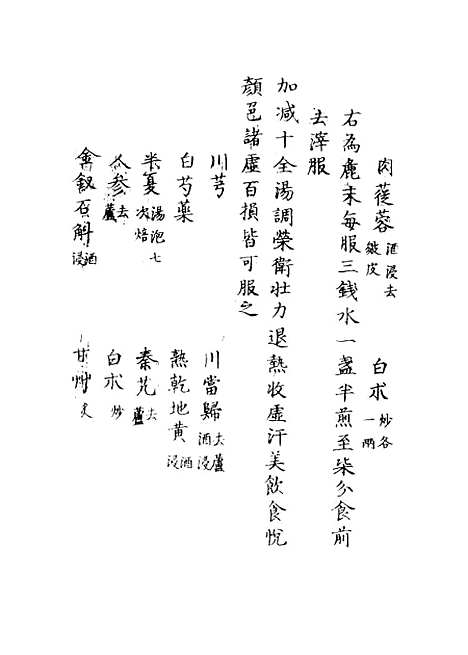 肉蓯蓉酒浸去皴皮 白朮炒各一兩
右為麄末每服三錢水一盞半煎至柒分食前
去滓服
加減十全湯調榮衛壯力退熱收虛汗美飲食悅
顏色諸虛百損皆可服之
川芎 川當歸去蘆酒浸
白芍藥 熟乾地黃酒浸
半夏湯泡七次焙 秦艽去蘆
人參去蘆 白朮炒
金釵石斛酒浸 甘草炙